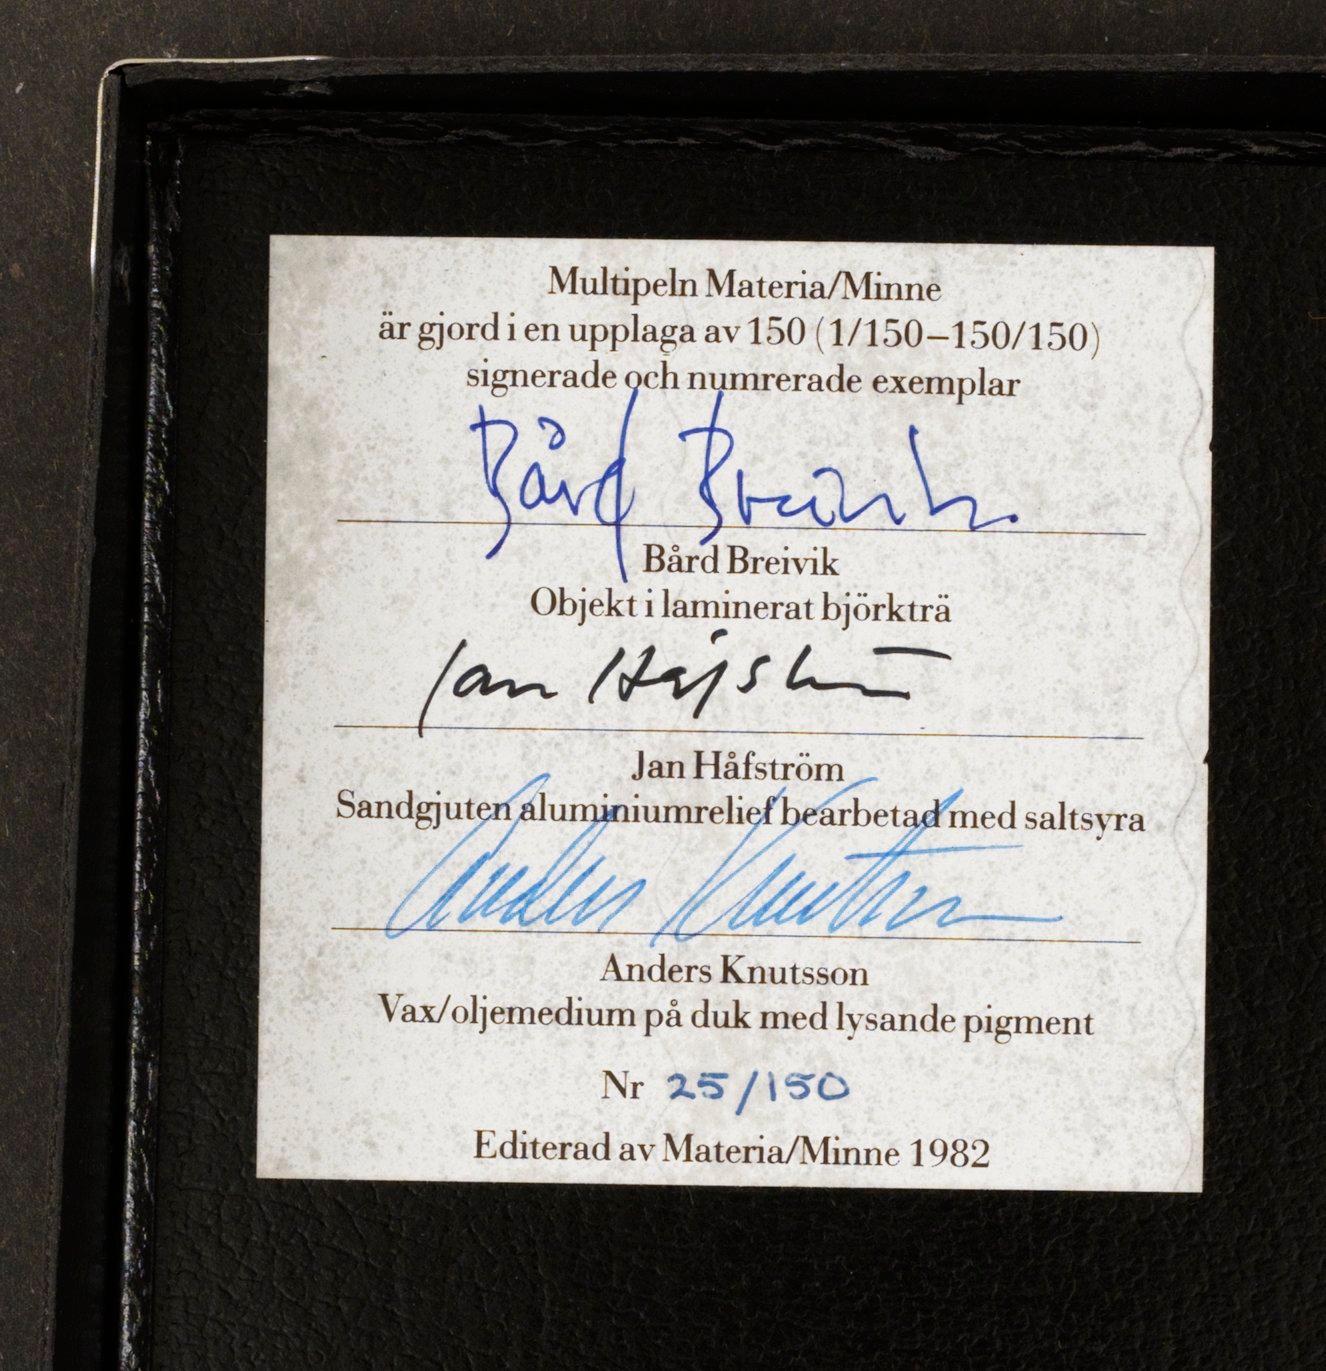 Multipeln Materia/Minne
är gjord i en upplaga av 150 (1/150–150/150)
signerade och numrerade exemplar
Bård Breivik
Bård Breivik
Objekt i laminerat björkträ
Jan Håfström
Jan Håfström
Sandgjuten aluminiumrelief bearbetad med saltsyra
Anders Knutsson
Anders Knutsson
Vax/oljemedium på duk med lysande pigment
Nr 25/150
Editerad av Materia/Minne 1982